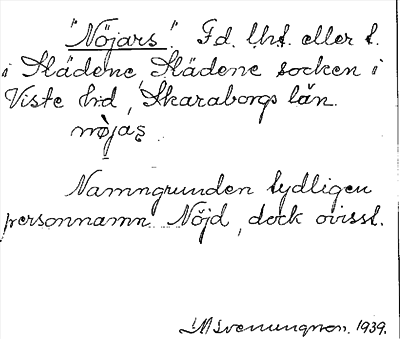 "Nöjars". Fd. lht. eller t.
i Slädene, Slädene socken i
Viste hd, Skaraborgs län.
nøjaʂ
Namngrunden tydligen
personnamn Nöjd, dock ovisst.
1939.